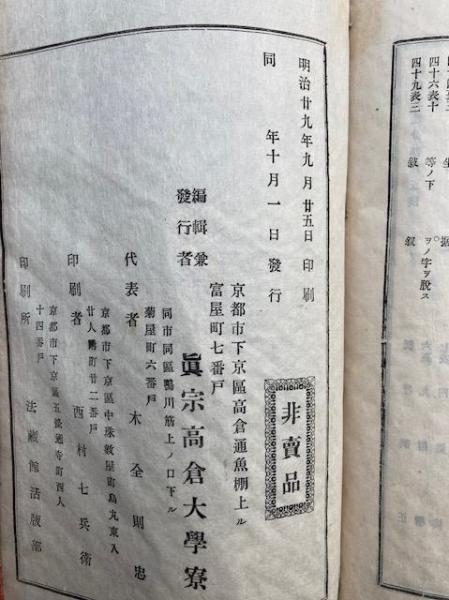 四十六表十
四十九表三
等ノ下
ヲノ字ヲ脫ス
叙
明治廿九年九月廿五日印刷
同年十月一日發行
非賣品
編輯兼
發行者
京都市下京區高倉通魚棚上ル
富屋町七番戶
眞宗高倉大學寮
代表者
同市同區鴨川筋上ノ口下ル
菊屋町六番戶
木全則忠
印刷者
京都市下京區中珠數屋町烏丸東入
廿人講町廿二番戶
西村七兵衛
印刷所
京都市下京區五條通寺町西入
十四番戶
法藏館活版部